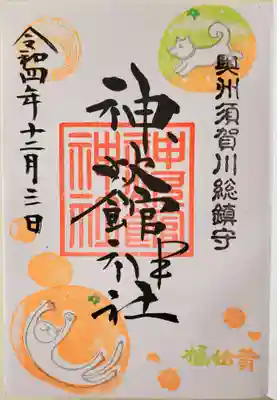 奥州須賀川総鎮守
神炊館神社
神炊館
神社
令和四年十二月三日